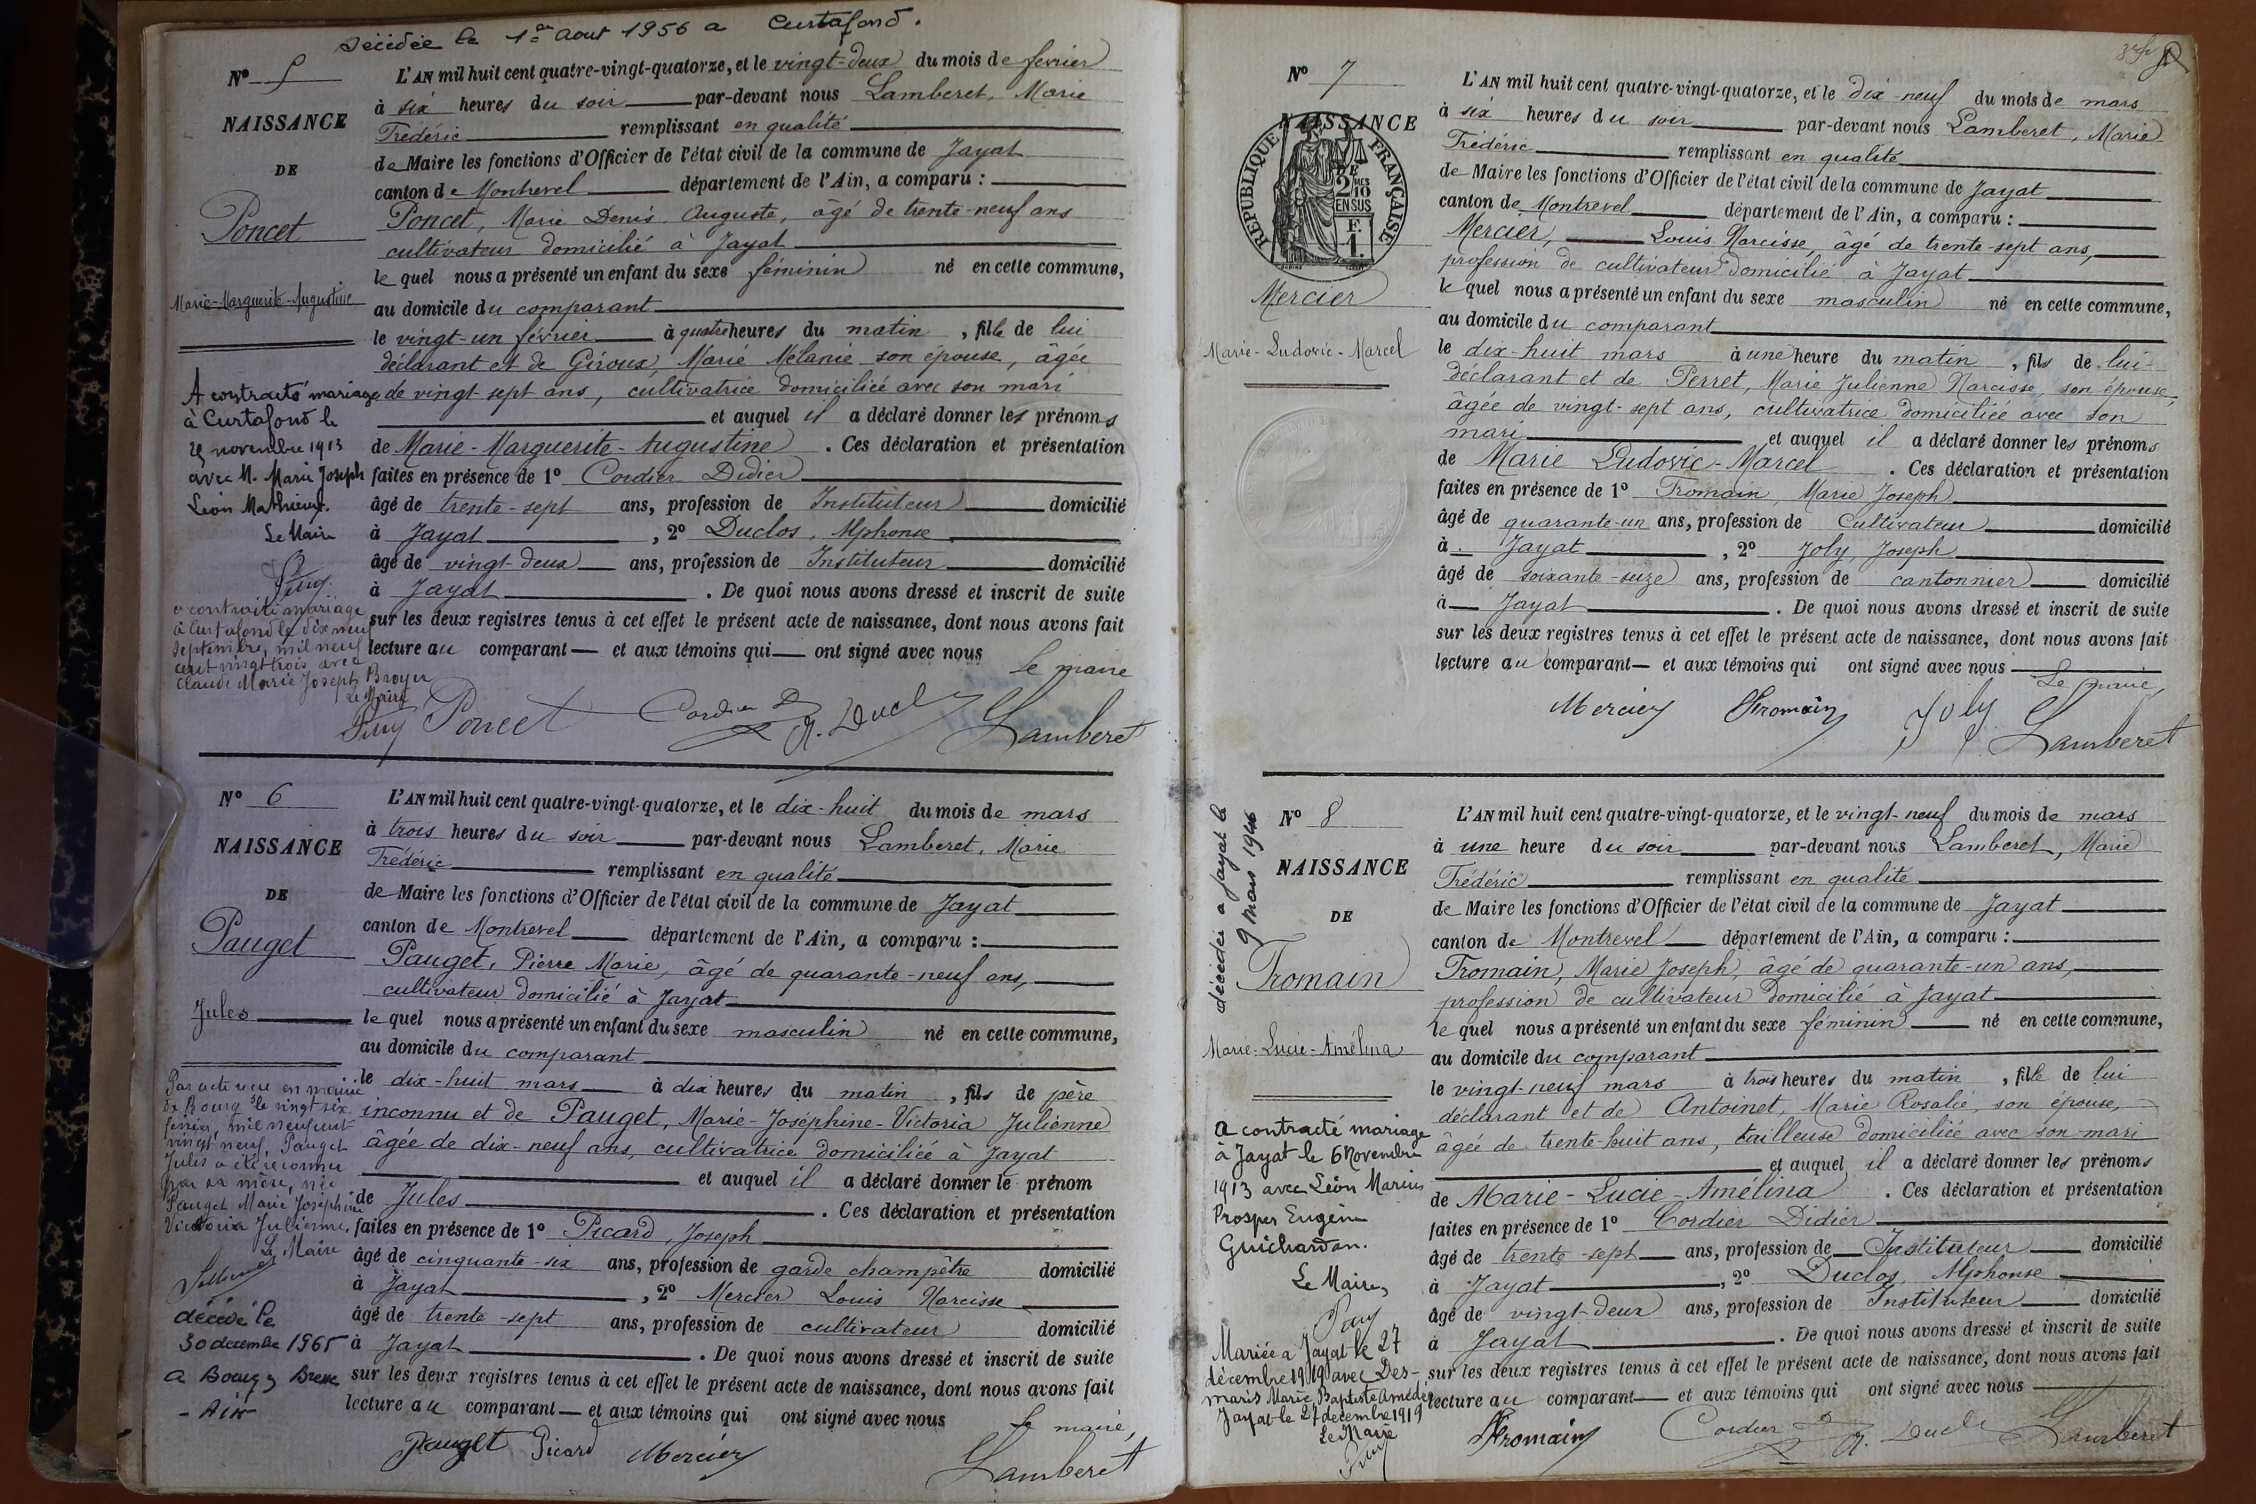 décédée le 1er Aout 1956 a Curtafond.
N° 5
NAISSANCE
DE
Poncet
Marie-Marguerite-Augustine
A contracté mariage
à Curtafond le
novembre 1913
avec M. Marie Joseph
Léon Mathieux.
Le Maire
Puy
a contracté mariage
à Curtafond le dix neuf
septembre, mil neuf
cent vingt trois avec
Claude Marie Joseph Broyer
Le Maire
Puy
L'AN mil huit cent quatre-vingt-quatorze, et le vingt-deux du mois de février
à six heures du soir par-devant nous Lamberet, Marie
Frédéric remplissant en qualité
de Maire les fonctions d'Officier de l'état civil de la commune de Jayat
canton de Montrevel département de l'Ain, a comparu :
Poncet, Marie Denis Auguste, âgé de trente-neuf ans
cultivateur domicilié à Jayat
le quel nous a présenté un enfant du sexe féminin né en cette commune,
au domicile du comparant
le vingt-un février à quatre heures du matin, fille de lui
déclarant et de Giroux, Marie Mélanie son épouse, âgée
de vingt-sept ans, cultivatrice domiciliée avec son mari
et auquel il a déclaré donner les prénoms
de Marie-Marguerite-Augustine. Ces déclaration et présentation
faites en présence de 1° Cordier Didier
âgé de trente-sept ans, profession de Instituteur domicilié
à Jayat, 2° Duclos, Alphonse
âgé de vingt-deux ans, profession de Instituteur domicilié
à Jayat. De quoi nous avons dressé et inscrit de suite
sur les deux registres tenus à cet effet le présent acte de naissance, dont nous avons fait
lecture au comparant et aux témoins qui ont signé avec nous
le maire
Poncet Cordier D A. Ducl Lamberet
N° 6
NAISSANCE
DE
Pauget
Jules
Par acte reçu en mairie
de Bourg le vingt six
février, mil neuf cent
vingt neuf, Pauget
Jules a été reconnu
par sa mère, née
Pauget Marie Joséphine
Victoria Julienne.
Le Maire
décédé le
30 decembre 1965
a Bourg Bresse
- Ain
L'AN mil huit cent quatre-vingt-quatorze, et le dix-huit du mois de mars
à trois heures du soir par-devant nous Lamberet, Marie
Frédéric remplissant en qualité
de Maire les fonctions d'Officier de l'état civil de la commune de Jayat
canton de Montrevel département de l'Ain, a comparu :
Pauget, Pierre Marie, âgé de quarante-neuf ans,
cultivateur domicilié à Jayat
le quel nous a présenté un enfant du sexe masculin né en cette commune,
au domicile du comparant
le dix-huit mars à dix heures du matin, fils de père
inconnu et de Pauget, Marie-Joséphine-Victoria Julienne
âgée de dix-neuf ans, cultivatrice domiciliée à Jayat
et auquel il a déclaré donner le prénom
de Jules. Ces déclaration et présentation
faites en présence de 1° Picard, Joseph
âgé de cinquante-six ans, profession de garde champêtre domicilié
à Jayat, 2° Mercier Louis Narcisse
âgé de trente-sept ans, profession de cultivateur domicilié
à Jayat. De quoi nous avons dressé et inscrit de suite
sur les deux registres tenus à cet effet le présent acte de naissance, dont nous avons fait
lecture au comparant et aux témoins qui ont signé avec nous
le maire,
Pauget Picard Mercier Lamberet
N° 7
NAISSANCE
DE
RÉPUBLIQUE FRANÇAISE
2/10 EN SUS
F. 1.
Mercier
Marie-Ludovic-Marcel
L'AN mil huit cent quatre-vingt-quatorze, et le dix-neuf du mois de mars
à six heures du soir par-devant nous Lamberet, Marie
Frédéric remplissant en qualité
de Maire les fonctions d'Officier de l'état civil de la commune de Jayat
canton de Montrevel département de l'Ain, a comparu :
Mercier, Louis Narcisse, âgé de trente-sept ans,
profession de cultivateur domicilié à Jayat
le quel nous a présenté un enfant du sexe masculin né en cette commune,
au domicile du comparant
le dix-huit mars à une heure du matin, fils de lui
déclarant et de Perret, Marie Julienne Narcisse, son épouse
âgée de vingt-sept ans, cultivatrice domiciliée avec son
mari et auquel il a déclaré donner les prénoms
de Marie Ludovic-Marcel. Ces déclaration et présentation
faites en présence de 1° Fromain, Marie Joseph
âgé de quarante-un ans, profession de Cultivateur domicilié
à Jayat, 2° Joly, Joseph
âgé de soixante-seize ans, profession de cantonnier domicilié
à Jayat. De quoi nous avons dressé et inscrit de suite
sur les deux registres tenus à cet effet le présent acte de naissance, dont nous avons fait
lecture au comparant et aux témoins qui ont signé avec nous
Le maire,
Mercier Fromain Joly Lamberet
décédée a Jayat le
9 mars 1946
N° 8
NAISSANCE
DE
Fromain
Marie-Lucie-Amélina
a contracté mariage
à Jayat le 6 Novembre
1913 avec Léon Marius
Prosper Eugène
Guichardon.
Le Maire,
Puy
Mariée a Jayat le 27
décembre 1919 avec Des-
maris Marie Baptiste Amédée
Jayat le 27 decembre 1919
Le Maire
Puy
L'AN mil huit cent quatre-vingt-quatorze, et le vingt-neuf du mois de mars
à une heure du soir par-devant nous Lamberet, Marie
Frédéric remplissant en qualité
de Maire les fonctions d'Officier de l'état civil de la commune de Jayat
canton de Montrevel département de l'Ain, a comparu :
Fromain, Marie Joseph, âgé de quarante-un ans,
profession de cultivateur domicilié à Jayat
le quel nous a présenté un enfant du sexe féminin né en cette commune,
au domicile du comparant
le vingt-neuf mars à trois heures du matin, fille de lui
déclarant et de Antoinet, Marie Rosalie, son épouse,
âgée de trente-huit ans, tailleuse domiciliée avec son mari
et auquel il a déclaré donner les prénoms
de Marie-Lucie-Amélina. Ces déclaration et présentation
faites en présence de 1° Cordier Didier
âgé de trente-sept ans, profession de Instituteur domicilié
à Jayat, 2° Duclos, Alphonse
âgé de vingt-deux ans, profession de Instituteur domicilié
à Jayat. De quoi nous avons dressé et inscrit de suite
sur les deux registres tenus à cet effet le présent acte de naissance, dont nous avons fait
lecture au comparant et aux témoins qui ont signé avec nous
Fromain Cordier D A. Ducl Lamberet